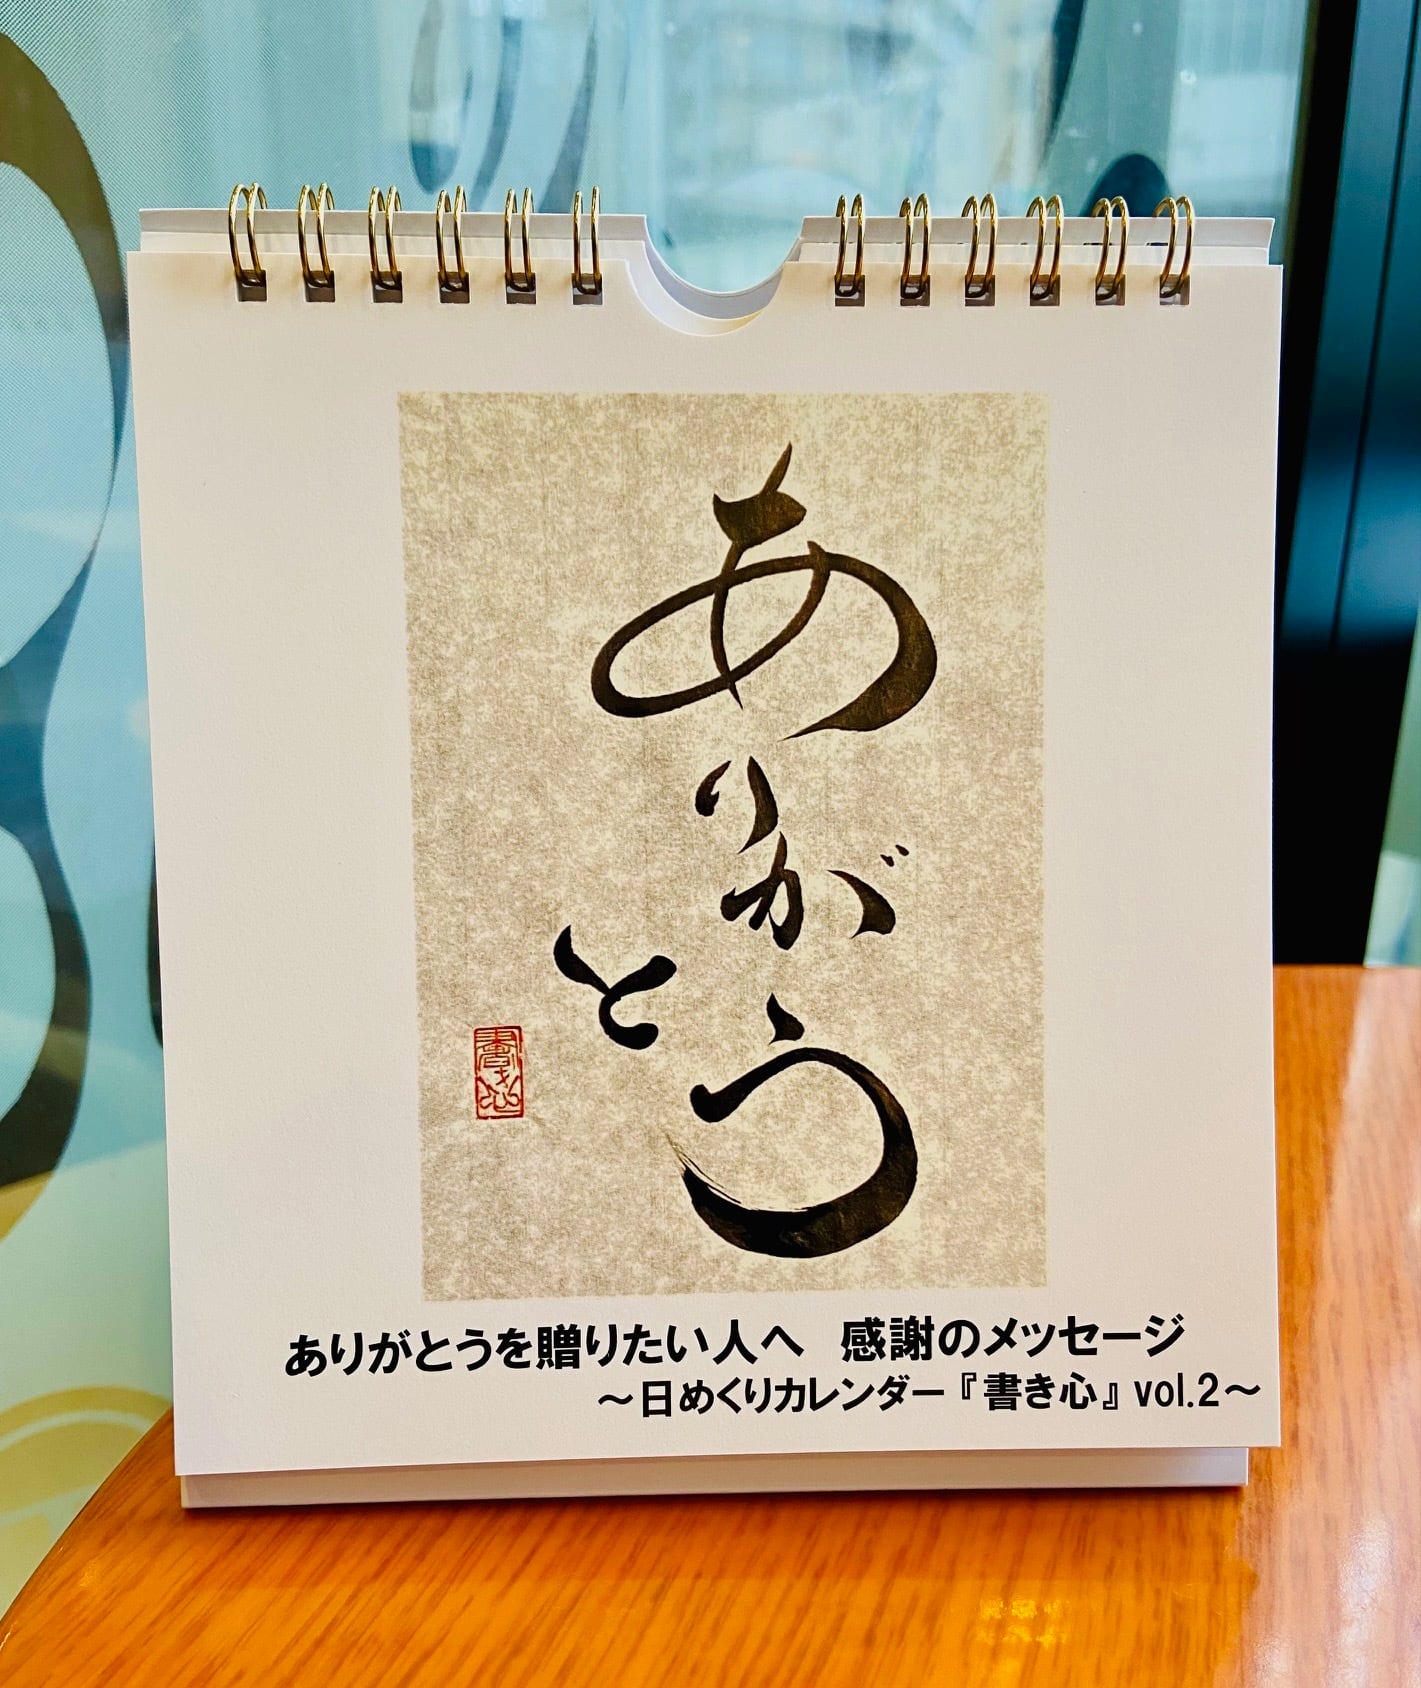 ありがとう
書き心
ありがとうを贈りたい人へ 感謝のメッセージ
～日めくりカレンダー『書き心』vol.2～